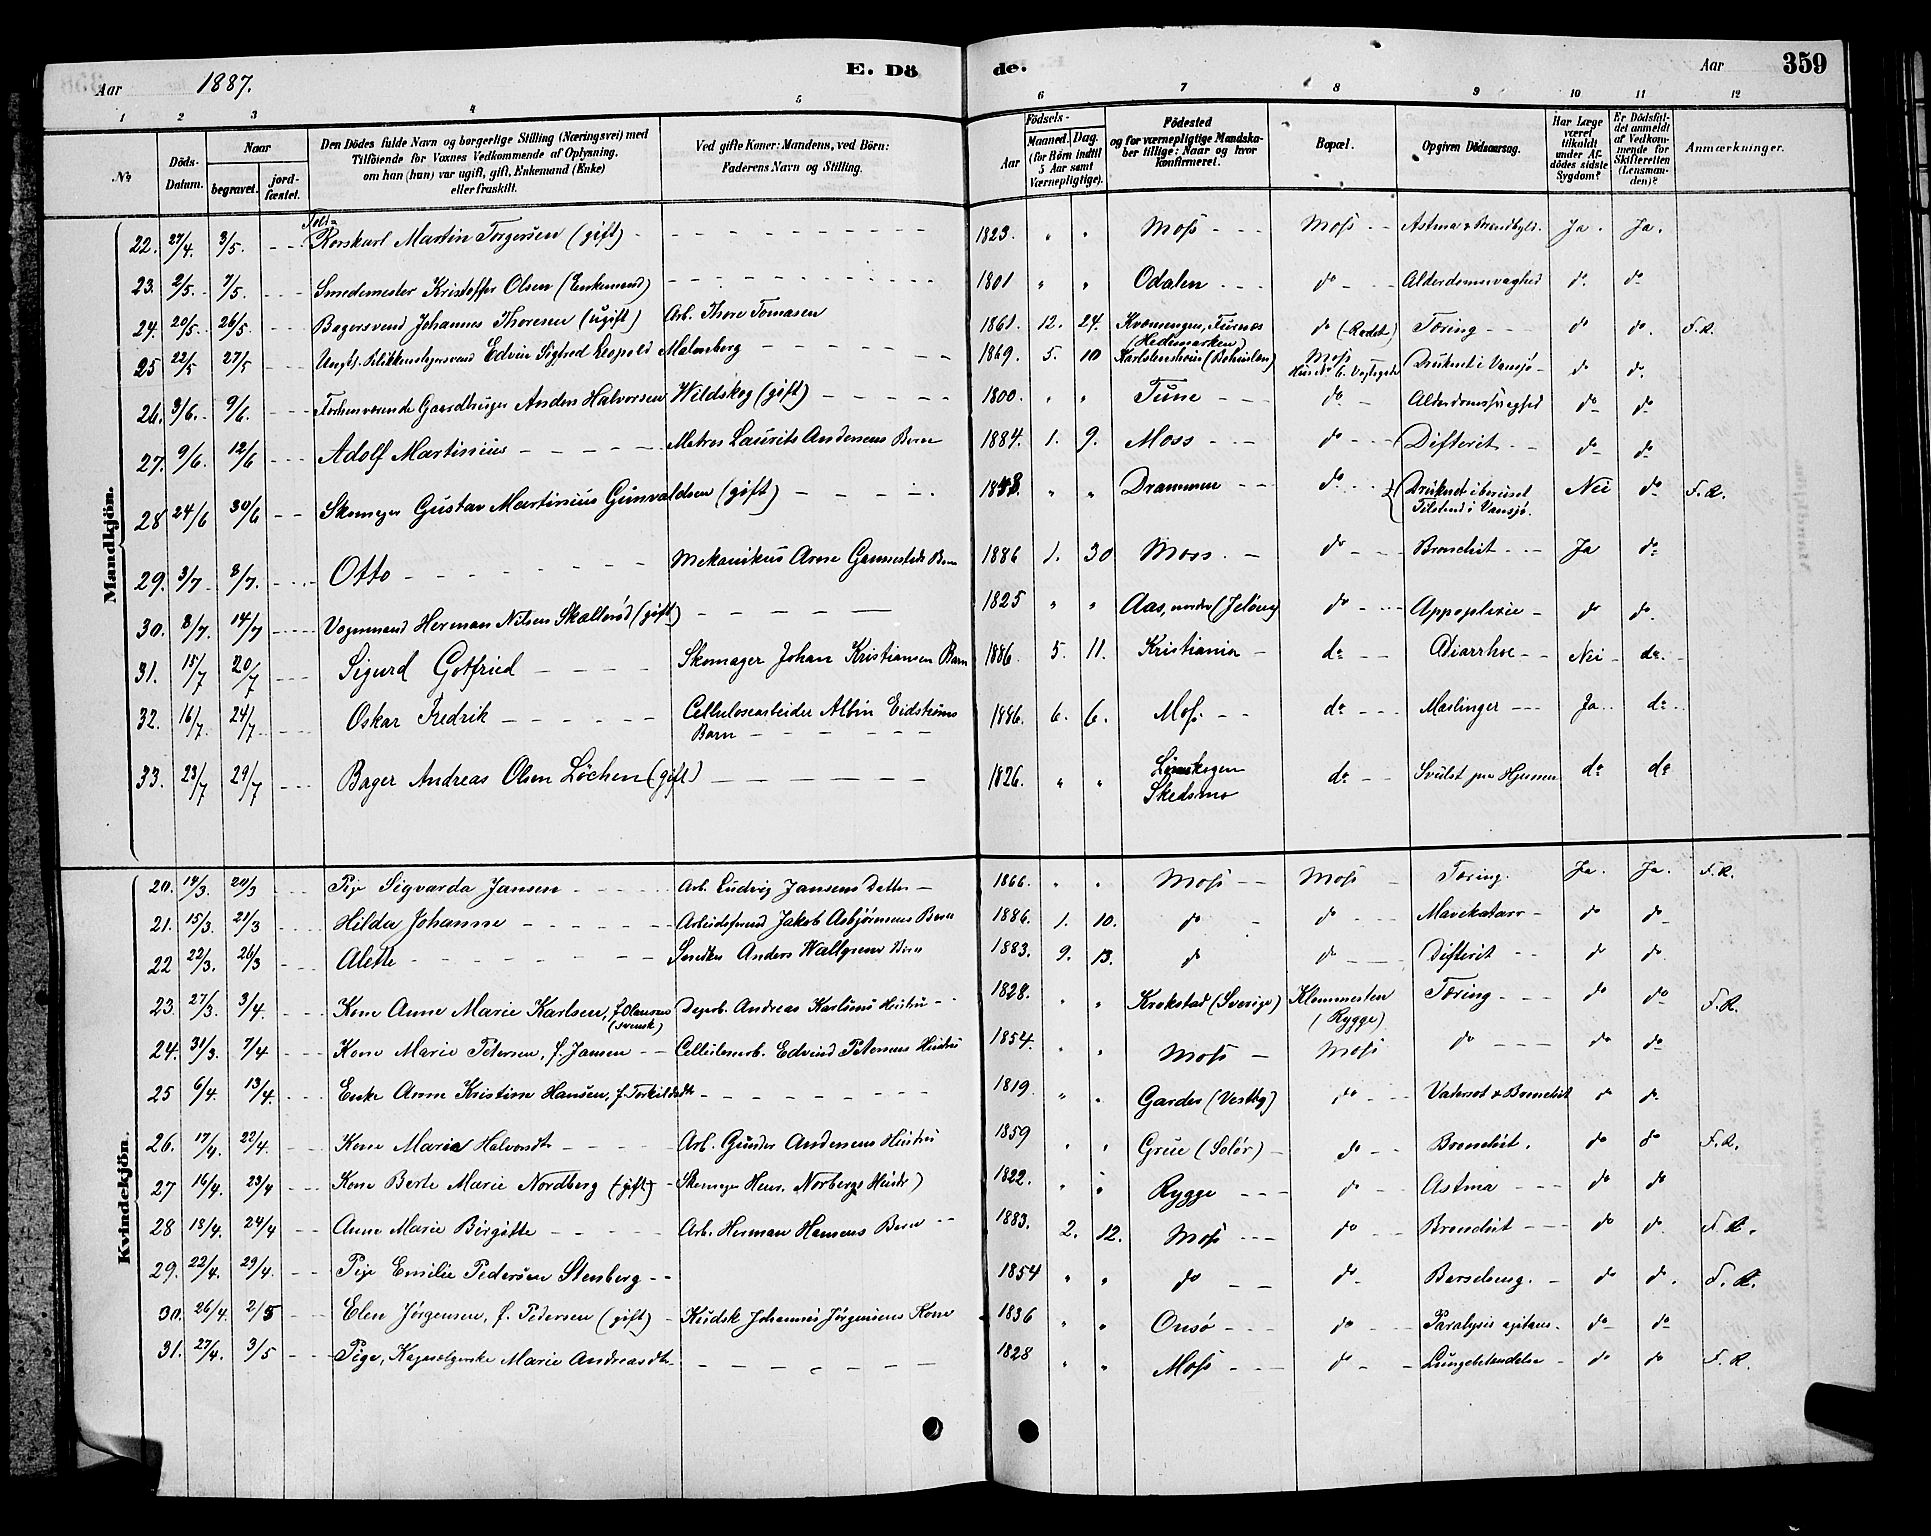 Aar 1887. E. Döde. Aar 359
1 2 3 4 5 6 7 8 9 10 11 12
No Döds-Datum. Naar begravet. jordfæstet. Den Dödes fulde Navn og borgerlige Stilling (Næringsvei) med Tilföiende for Voxnes Vedkommende af Oplysning, om han (hun) var ugift, gift, Enkemand (Enke) eller fraskilt. Ved gifte Koner: Mandens, ved Börn: Faderens Navn og Stilling. Födsels- Aar Maaned. Dag. (for Börn indtil 5 Aar samt Værnepligtige). Födested og for værnepligtige Mandskaber tillige: Naar og hvor konfirmeret. Bopæl. Opgiven Dödsaarsag. Har Læge været tilkaldt under Afdödes sidste Sygdom? Er Dödsfaldet anmeldt af Vedkommende for Skifteretten (Lensmanden)? Anmærkninger.
Mandkjön.
22. 27/4. 3/5. Told= Rorskarl Martin Torgersen (gift) 1823. " " Moss Moss Astma Ja. Ja.
23. 2/5. 7/5. Smedemester Kristoffer Olsen (Enkemand) 1801 " " Odalen do Alderdomssvaghed do do
24. 20/5. 26/5. Bagersvend Johannes Thoresen (ugift) Arb. Thore Tomasen 1861. 12. 24. Furnæs (Hedemarken) do Tæring do do. F.R.
25 22/5 27/5 Ungk. Blikkenslagersvend Edvin Sigfred Leopold Malmberg 1869. 5. 10 (Bohuslen) Moss Hus No 6. Druknet i Vansjø do do.
26. 3/6. 9/6. Forhenværende Gaardbruger Anders Halvorsen Wildskog (gift) 1800. " " Tune do Alderdomssvaghed do do
27. 9/6. 12/6 Adolf Martinius Matros Laurits Andersens Barn 1884. 1. 9. Moss do Difterit do do
28 24/6 30/6 Skomager Gustav Martinius Gunvaldsen (gift) 1848. " " Drammen do Druknet i beruset Tilstand i Vansjø. Nei do F.R.
29. 3/7 8/7. Otto Mekanikus Arne Barn 1886 1. 30 Moss. do Bronchit Ja do
30. 8/7. 14/7 Vognmand Herman Nilsen Skallerød (gift) 1825 " " Aas, (Jeløen) do Appoplexie do do.
31. 15/7 20/7 Sigurd Gotfried Skomager Johan Kristiansen Barn 1886. 5. 11. Kristiania do Diarrhoe Nei do.
32. 16/7. 24/7. Oskar Fredrik Cellulosearbeider Albin Eidstrøms Barn 1886. 6. 6. Moss do Meslinger Ja do
33. 23/7 29/7 Bager Andreas Olsen Løchen (gift) 1826. " " Lønskogen Skedsmo do Svulst paa Hjernen do do
Kvindekjön.
20. 14/3. 20/3 Pige Sigvarda Jansen Arb. Ludvig Jansens Datter 1866. " " Moss Moss Tæring. Ja. Ja. F.R.
21. 15/3. 21/3 Hilda Johanne Arbeidsmand Jakob Asbjørnsens Barn 1886. 1. 10. do do Mavekatarr do do
22 22/3. 26/3 Alette Snedker Anders Wallgrens Barn 1883. 9. 13. do do Difterit do do
23. 27/3. 3/4. Kone Anne Marie Karlsen, f. Olausen (svensk) Andreas Karlsens Hustru 1828. " " Krokstad (Sverige) (Rygge) Tæring do do F.R.
24. 31/3. 7/4 Kone Marie Petersen, f. Jansen Cellulosearb. Edvind Petersens Hustru 1854. " " Moss Moss do do do
25 6/4. 13/4. Enke Anne Kristine Hansen, f. Torkildsdtr 1819. " " Garder (Vestby) do Vatersot & Bronchit do do
26. 17/4. 22/4. Kone Marie Halvorsdtr Arb. Gunder Andersens Hustru 1859 " " Grue (Solør) do Bronchit. do do F.R.
27 16/4. 23/4 Kone Berte Marie Nordberg (gift) Skomager Henr. Norbergs Hustr) 1822. " " Rygge do Astma do do
28 18/4. 24/4 Anne Marie Birgitte Arb. Herman Hansens Barn 1883. 2. 12. Moss do Bronchit do do F.R.
29. 22/4. 29/4. Pige Emilie Pedersen Stenberg 1854 " " do do Barselseng. do do. F.R.
30. 26/4. 2/5 Elen Jørgensen, f. Pedersen (gift) Kudsk Johannes Jørgensens Kone 1836 " " Onsø do Paralysis agitans do do
31. 27/4. 3/5 Pige, Marie Andreasdtr 1828 " " Moss do Lungebetændelse do do F.R.